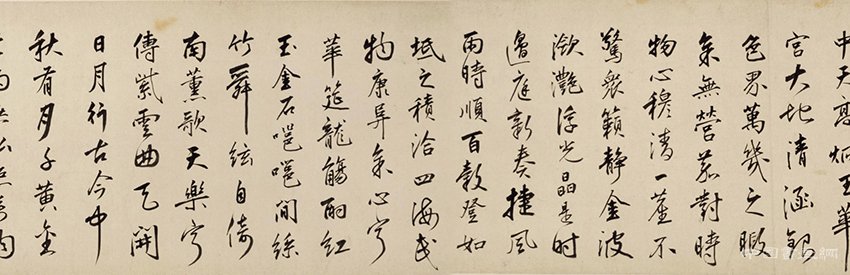 中天炯玉華
宮大地清涵銀
色界萬幾之暇
余無營茲對時
物心穆清一塵不
驚衆籟静金波
瀲灔浮光晶是時
邊庭新奏捷風
雨時順百穀登如
坻之積洽四海民
物康阜余心寧
華筵龍觴酌紅
玉金石喤喤間絲
竹舜絃自倚
南薰歌天樂寧
傳紫雲曲天開
日月行古今中
秋看月子黄金